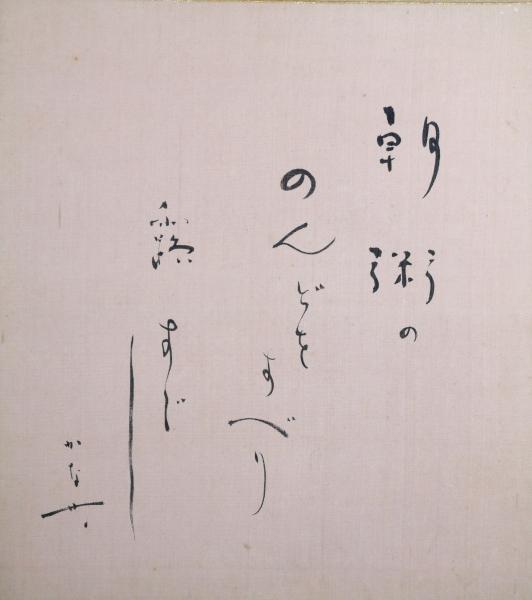 朝粥の
のんどをすべり
露すゞし
かな女